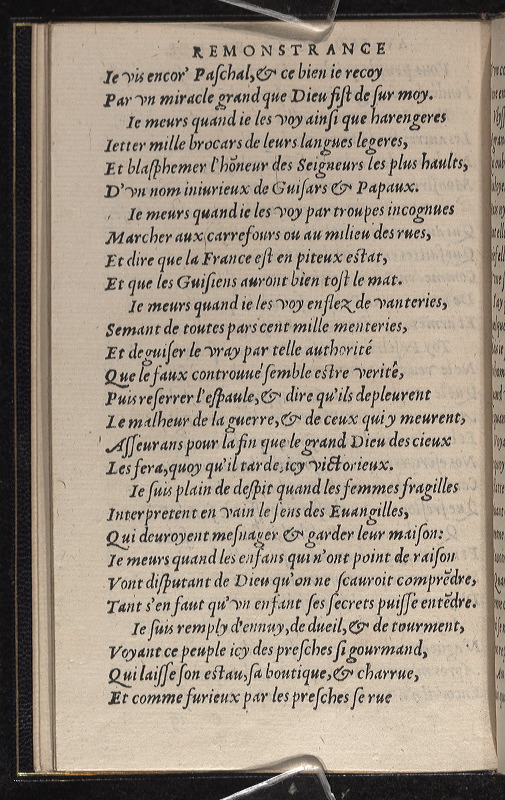 REMONSTRANCE
Ie vis encor' Paſchal, & ce bien ie recoy
Par vn miracle grand que Dieu fiſt de ſur moy.
Ie meurs quand ie les voy ainſi que harengeres
Ietter mille brocars de leurs langues legeres,
Et blaſphemer l'hõneur des Seigneurs les plus haults,
D'vn nom iniurieux de Guiſars & Papaux.
Ie meurs quand ie les voy par troupes incognues
Marcher aux carrefours ou au milieu des rues,
Et dire que la France eſt en piteux eſtat,
Et que les Guiſiens auront bien toſt le mat.
Ie meurs quand ie les voy enflez de vanteries,
Semant de toutes pars cent mille menteries,
Et deguiſer le vray par telle authorité
Que le faux controuué ſemble eſtre verité,
Puis reſerrer l'eſpaule, & dire qu'ils depleurent
Le malheur de la guerre, & de ceux qui y meurent,
Aſſeurans pour la fin que le grand Dieu des cieux
Les fera, quoy qu'il tarde, icy victorieux.
Ie ſuis plain de deſpit quand les femmes fragilles
Interpretent en vain le ſens des Euangilles,
Qui deuroyent meſnager & garder leur maiſon:
Ie meurs quand les enfans qui n'ont point de raiſon
Vont diſputant de Dieu qu'on ne ſcauroit comprẽdre,
Tant s'en faut qu'vn enfant ſes ſecrets puiſſe entẽdre.
Ie ſuis remply d'ennuy, de dueil, & de tourment,
Voyant ce peuple icy des preſches ſi gourmand,
Qui laiſſe ſon eſtau, ſa boutique, & charrue,
Et comme furieux par les preſches ſe rue